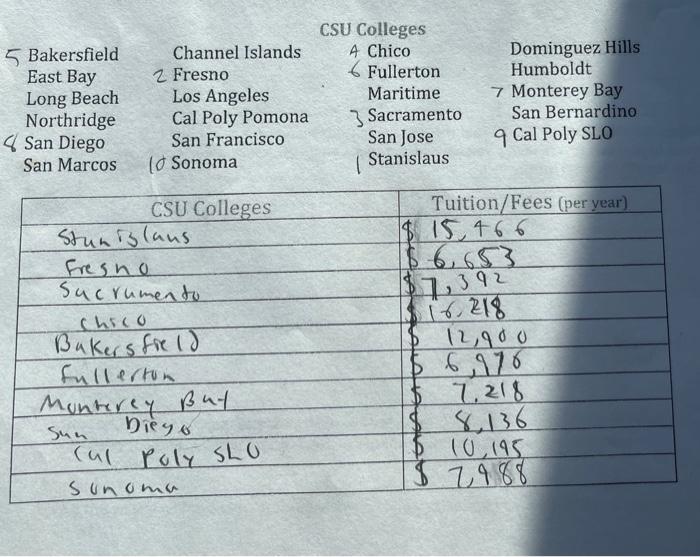 CSU Colleges
5 Bakersfield Channel Islands 4 Chico Dominguez Hills
East Bay 2 Fresno 6 Fullerton Humboldt
Long Beach Los Angeles Maritime 7 Monterey Bay
Northridge Cal Poly Pomona 3 Sacramento San Bernardino
8 San Diego San Francisco San Jose 9 Cal Poly SLO
San Marcos 10 Sonoma 1 Stanislaus
CSU Colleges Tuition/Fees (per year)
Stanislaus $ 15,466
Fresno $ 6,653
Sacramento $ 7,392
Chico $ 16,218
Bakersfield $ 12,900
Fullerton $ 6,976
Monterey Bay $ 7,218
San Diego $ 8,136
Cal Poly SLO $ 10,195
Sonoma $ 7,988